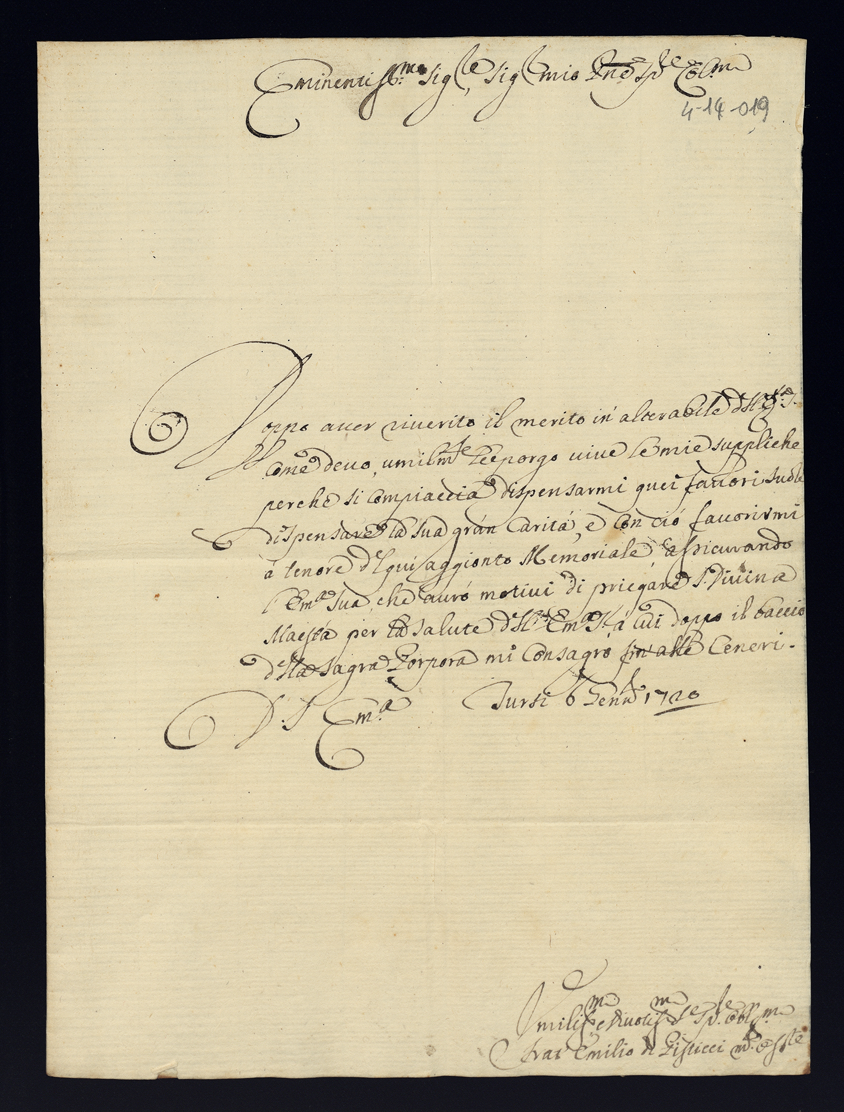 Eminentiss:mo Sig:re, Sig:re mio Pne Sp:e Col:mo
4-14-019
Doppo aver riverito il merito in'alterabile
Come devo, umilm:te Le porgo vive le mie suppliche
perche si compiaccia dispensarmi quei favori suole
dispensare la sua gran Caritá, e con ció favorirmi
á tenore del qui aggionto Memoriale assicurando
l'Em:a Sua, che auró motivi di priegare S. Divina
Maestá per la salute dell' Em:a S:a á cui doppo il baccio
della Sagra Porpora mi consagró fin'alle Ceneri.
D. S. Em:a Tursi 6 Genn:o 1720
Umiliss:mo e Divotiss:mo
Frat' Emilio di Pisticci